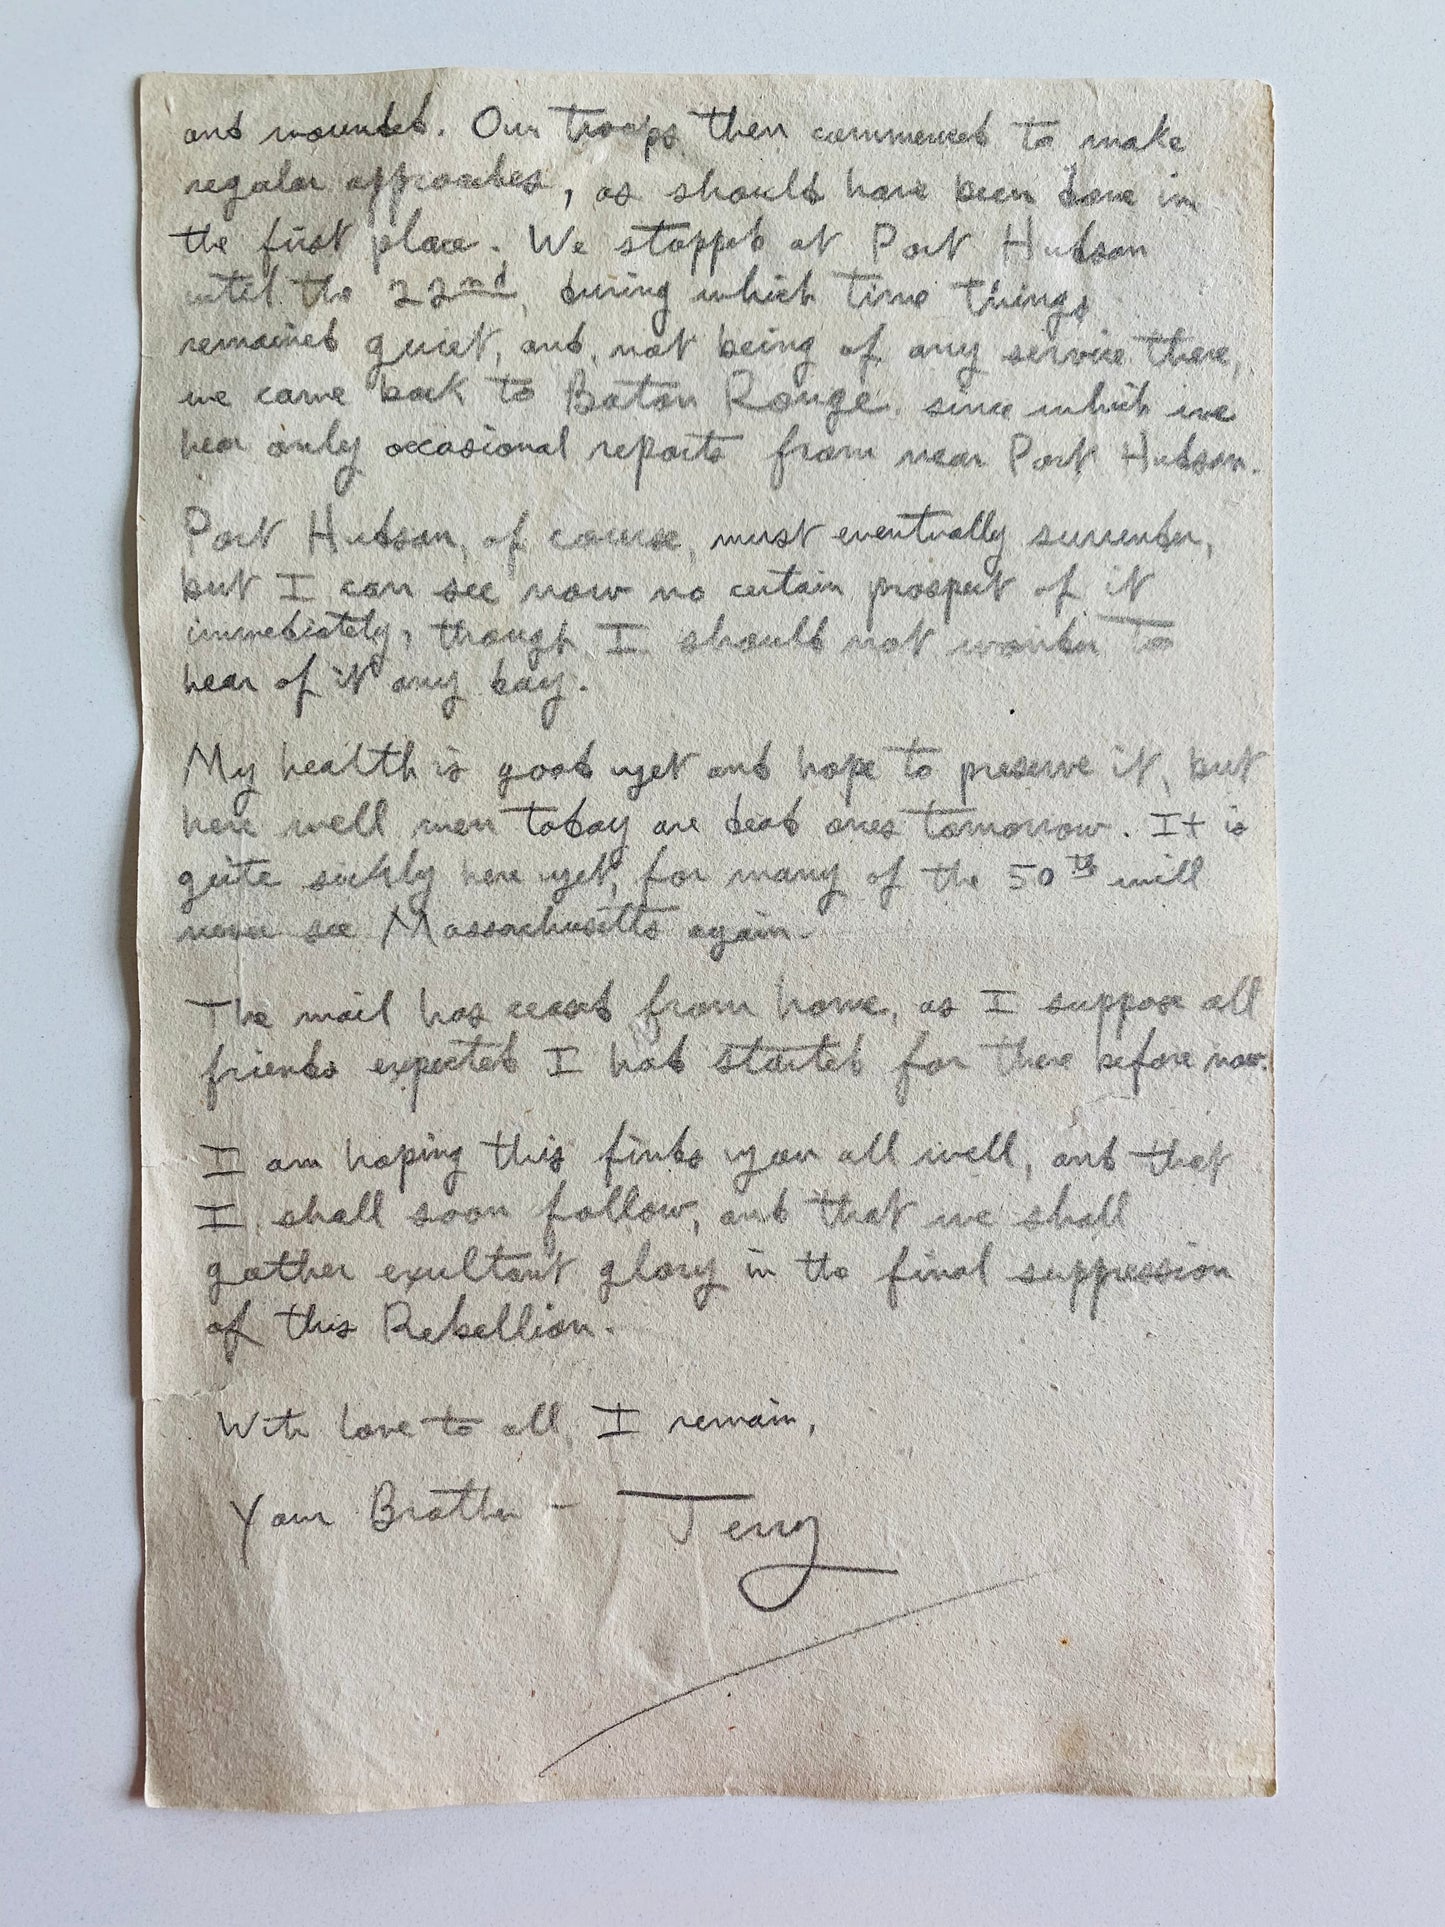 and wounded. Our troops then commenced to make
regular approaches, as should have been done in
the first place. We stopped at Port Hudson
until the 22nd, during which time things
remained quiet, and, not being of any service there,
we came back to Baton Rouge, since which we
hear only occasional reports from near Port Hudson.
Port Hudson, of course, must eventually surrender,
but I can see now no certain prospect of it
immediately, though I should not wonder to
hear of it any day.
My health is good yet and hope to preserve it, but
here well men today are dead ones tomorrow. It is
quite sickly here yet, for many of the 50th will
never see Massachusetts again.
The mail has ceased from home, as I suppose all
friends expected I had started for there before now.
I am hoping this finds you all well, and that
I shall soon follow, and that we shall
gather exultant glory in the final suppression
of this Rebellion.
With love to all, I remain,
Your Brother - Jerry